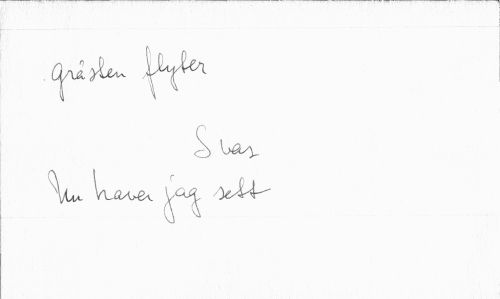 gråsten flyter
Svar
Nu haver jag sett